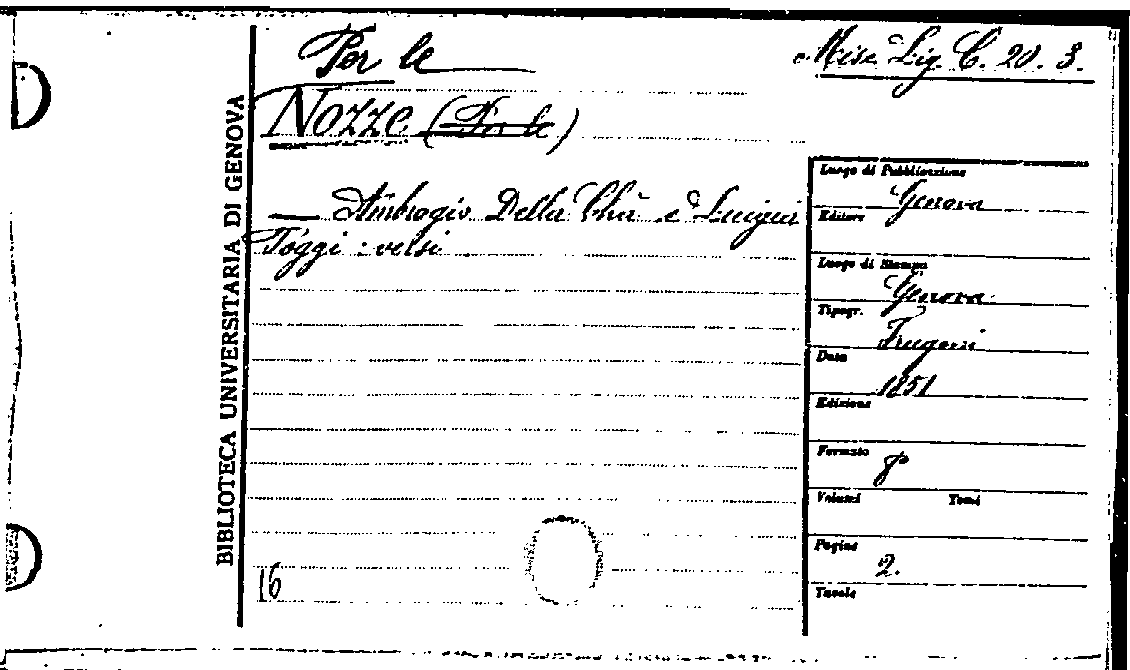 Per le
Misc. Lig. C. 20. 3.
Nozze (Per le)
— Ambrogio Della Chà e Luigia
Poggi: versi
16
BIBLIOTECA UNIVERSITARIA DI GENOVA
Luogo di Pubblicazione
Genova
Editore
Luogo di Stampa
Genova
Tipogr.
Frugoni
Data
1851
Edizione
Formato
8°
Volumi Tomi
Pagine
2.
Tavole